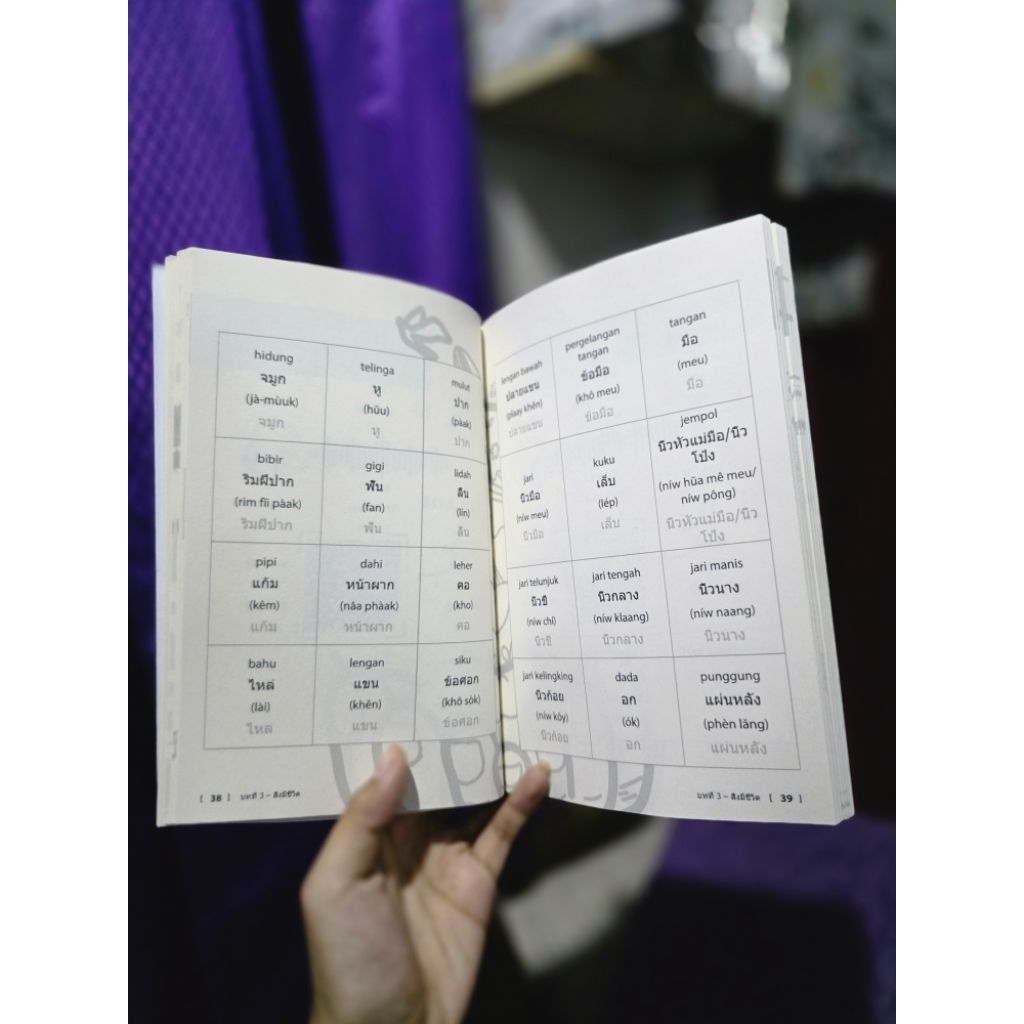 hidung
จมูก
(jà-mùuk)
จมูก
telinga
หู
(hŭu)
หู
mulut
ปาก
(pàak)
ปาก
bibir
ริมฝีปาก
(rim fĭi pàak)
ริมฝีปาก
gigi
ฟัน
(fan)
ฟัน
lidah
ลิ้น
(lín)
ลิ้น
pipi
แก้ม
(kêm)
แก้ม
dahi
หน้าผาก
(nâa phàak)
หน้าผาก
leher
คอ
(kho)
คอ
bahu
ไหล่
(lài)
ไหล่
lengan
แขน
(khĕn)
แขน
siku
ข้อศอก
(khô sòk)
ข้อศอก
[ 38 ] บทที่ 3 – สิ่งมีชีวิต
lengan bawah
ปลายแขน
(plaay khĕn)
ปลายแขน
pergelangan
tangan
ข้อมือ
(khô meu)
ข้อมือ
tangan
มือ
(meu)
มือ
jari
นิ้วมือ
(níw meu)
นิ้วมือ
kuku
เล็บ
(lép)
เล็บ
jempol
นิ้วหัวแม่มือ/นิ้ว
โป้ง
(níw hŭa mê meu/
níw pông)
นิ้วหัวแม่มือ/นิ้ว
โป้ง
jari telunjuk
นิ้วชี้
(níw chí)
นิ้วชี้
jari tengah
นิ้วกลาง
(níw klaang)
นิ้วกลาง
jari manis
นิ้วนาง
(níw naang)
นิ้วนาง
jari kelingking
นิ้วก้อย
(níw kôy)
นิ้วก้อย
dada
อก
(òk)
อก
punggung
แผ่นหลัง
(phèn lăng)
แผ่นหลัง
บทที่ 3 – สิ่งมีชีวิต [ 39 ]